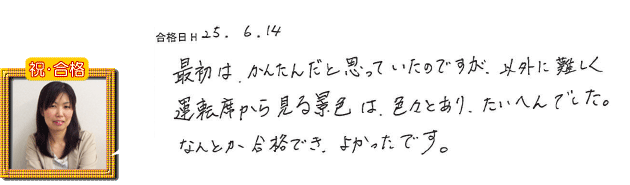 合格日 H 25. 6. 14
祝・合格
最初は、かんたんだと思っていたのですが、以外に難しく
運転席から見る景色は、色々とあり、たいへんでした。
なんとか合格でき、よかったです。